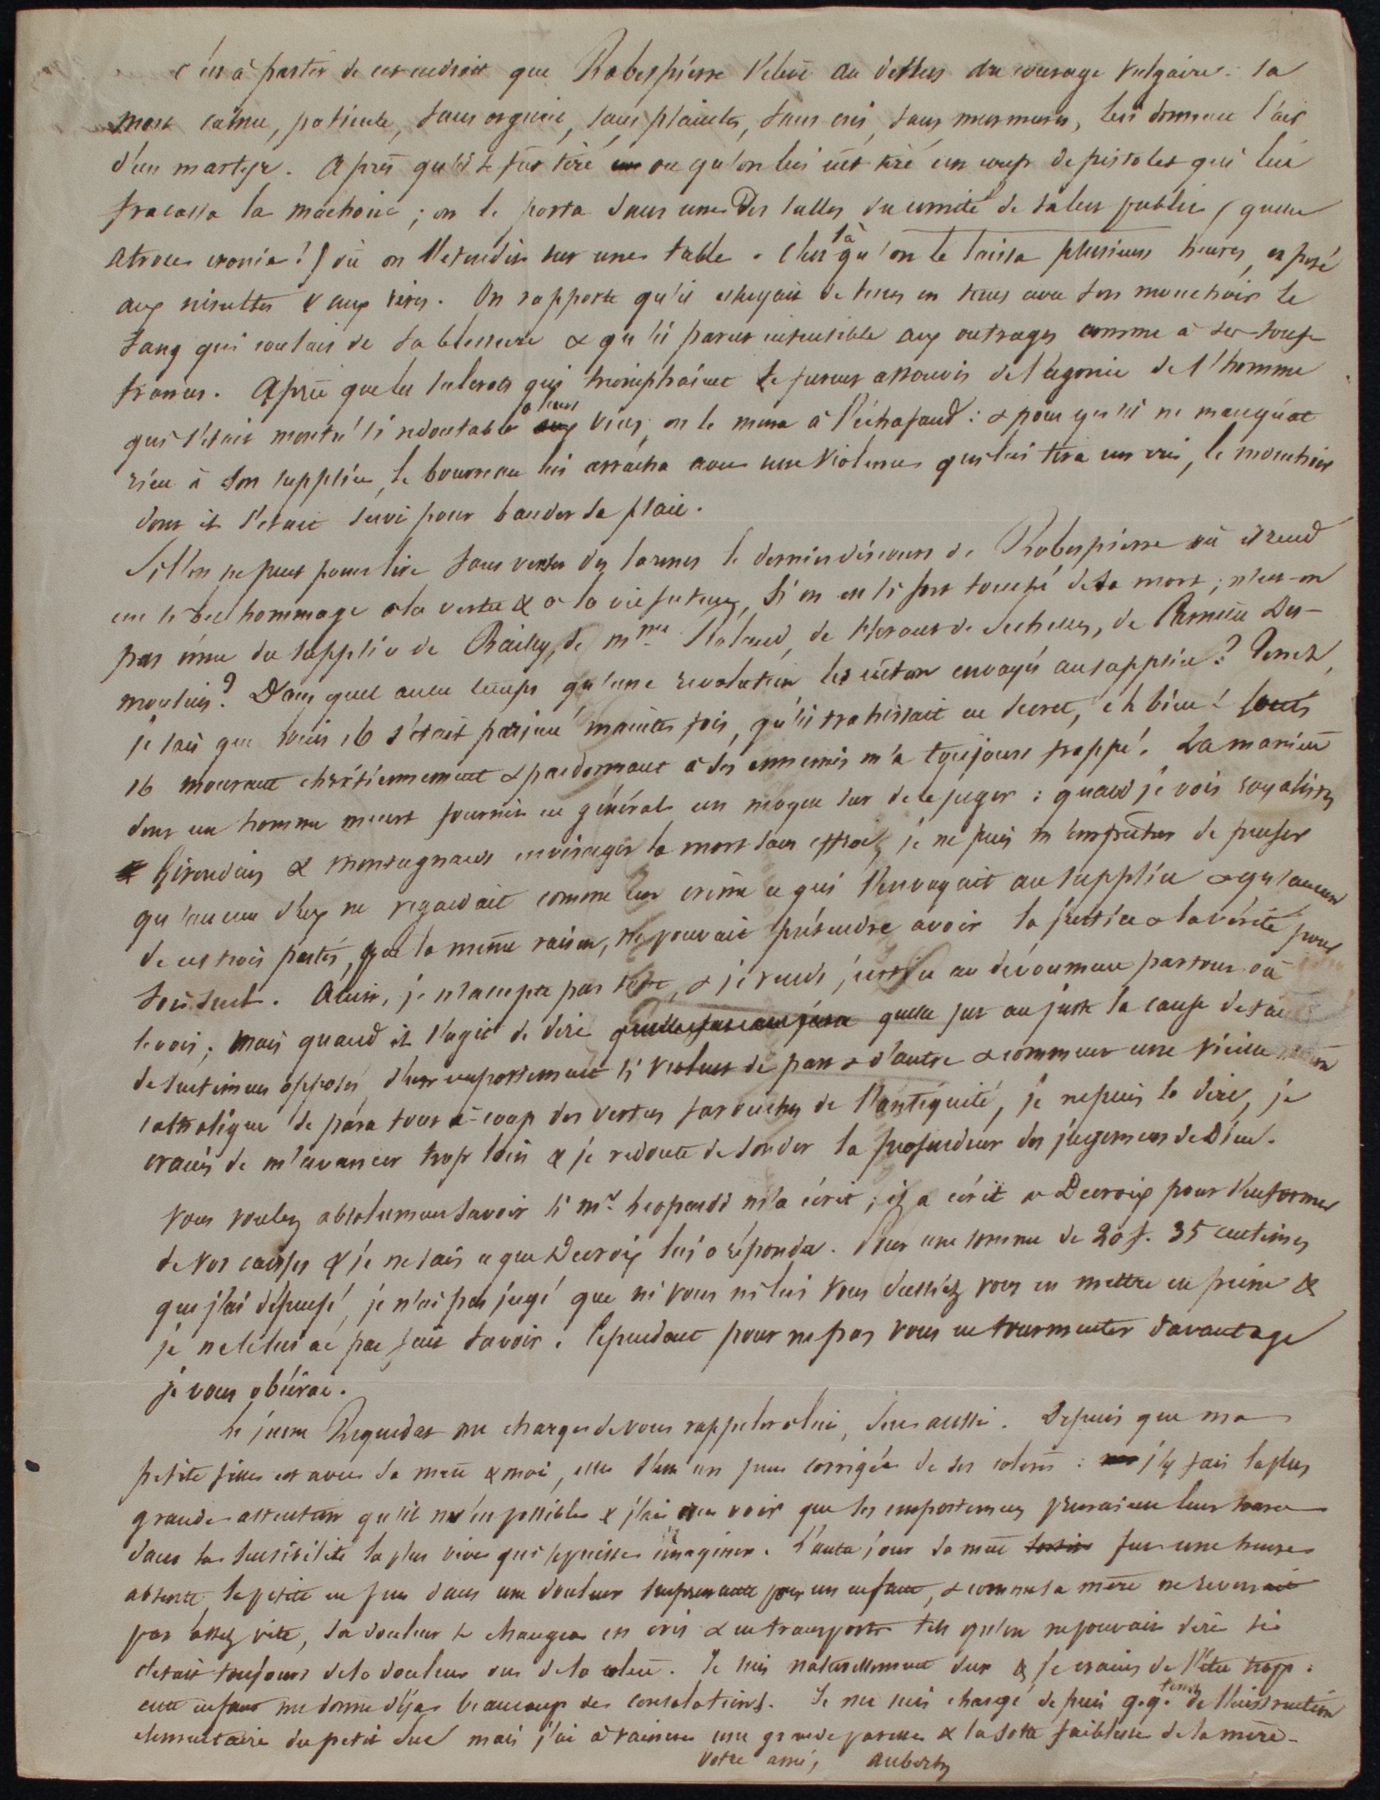 c'est à partir de cet endroit que Robespierre s'eleve au dessus du courage vulgaire : sa
mort calme, patiente, sans orgueil, sans plaintes, sans cris, sans murmures, lui donnent l'air
d'un martyr. Après qu'il se fut tiré ou qu'on lui eût tiré un coup de pistolet qui lui
fracassa la mâchoire ; on le porta dans une des salles du comité de salut public (quelle
atroce ironie !) où on l'etendit sur une table. C'est là qu'on le laissa plusieurs heures, exposé
aux insultes & aux rires. On rapporte qu'il essuyait de tems en tems avec son mouchoir le
sang qui coulait de sa blessure & qu'il parut insensible aux outrages comme à ses souf-
frances. Après que les scélérats qui triomphaient se furent assouvis de l'agonie de l'homme
qui s'était montré si redoutable à leurs vices, on le mena à l'échafaud : & pour qu'il ne manquât
rien à son supplice, le bourreau lui arracha avec une violence qui lui tira un cri, le mouchoir
dont il s'etait servi pour bander sa plaie.
Si l'on ne peut pour lire sans verser des larmes le dernier discours de Robespierre où il rend
un si bel hommage à la vertu & à la vie future, si on est si fort touché de sa mort ; n'est-on
pas ému du supplice de Bailly, de Mme Roland, de Herault de Sechelles, de Camille Des-
moulins ? Dans quel autre temps qu'une revolution les eut-on envoyés au supplice ? Tenez,
je sais que Louis 16 s'était parjuré maintes fois, qu'il trahissait en secret, eh bien ! Louis
16 mourant chrétiennement & pardonnant à ses ennemis m'a toujours frappé. La manière
dont un homme meurt fournit en général un moyen sur de le juger : quand je vois royalistes
Girondins & montagnards envisager la mort sans effroi, je ne puis m'empêcher de penser
qu'aucun d'eux ne regardait comme un crime ce qui l'envoyait au supplice & qu'aucun
de ces trois partis, par la même raison, ne pouvait prétendre avoir la justice & la vérité pour
soi seul. Ainsi, je n'accepte pas tout, & je rends justice au dévoument partout où je
le vois ; mais quand il s'agit de dire quelle fut au juste la cause de tant
de sentimens opposés, d'un emportement si violent de part & d'autre & comment une vieille nation
catholique se para tout à-coup des vertus farouches de l'antiquité, je ne puis le dire, je
crains de m'avancer trop loin & je redoute de sonder la profondeur des jugemens de Dieu.
Vous voulez absolument savoir si Mr. Leopardi m'a écrit ; il a écrit à Decroix pour s'informer
de vos caisses & je ne sais ce que Decroix lui a répondu. Pour une somme de 20 f. 35 centimes
que j'ai dépensé, je n'ai pas jugé que ni vous ni lui vous dussiez vous en mettre en peine &
je ne le lui ai pas fait savoir. Cependant pour ne pas vous en tourmenter davantage
je vous obéirai.
Le jeune Requedat me charge de vous rappeler à lui, Sue aussi. Depuis que ma
petite fille est avec sa mère & moi, elle s'est un peu corrigée de ses colères : j'y fais la plus
grande attention qu'il m'est possible & j'ai cru voir que ses emportemens prenaient leur source
dans la sensibilité la plus vive qui se puisse imaginer. L'autre jour sa mère fut une heure
absente, la petite en fut dans une douleur surprenante pour un enfant, & comme sa mère ne revenait
pas assez vite, sa douleur se changea en cris & en transports tels qu'on ne pouvait dire si
c'etait toujours de la douleur ou de la colère. Je suis naturellement dur & je crains de l'être trop :
cette enfant me donne déjà beaucoup de consolations. Je me suis chargé depuis q.q. tems de l'instruction
élémentaire du petit Sue mais j'ai à vaincre une grande paresse & la sotte faiblesse de la mère.
Votre ami, Auberty